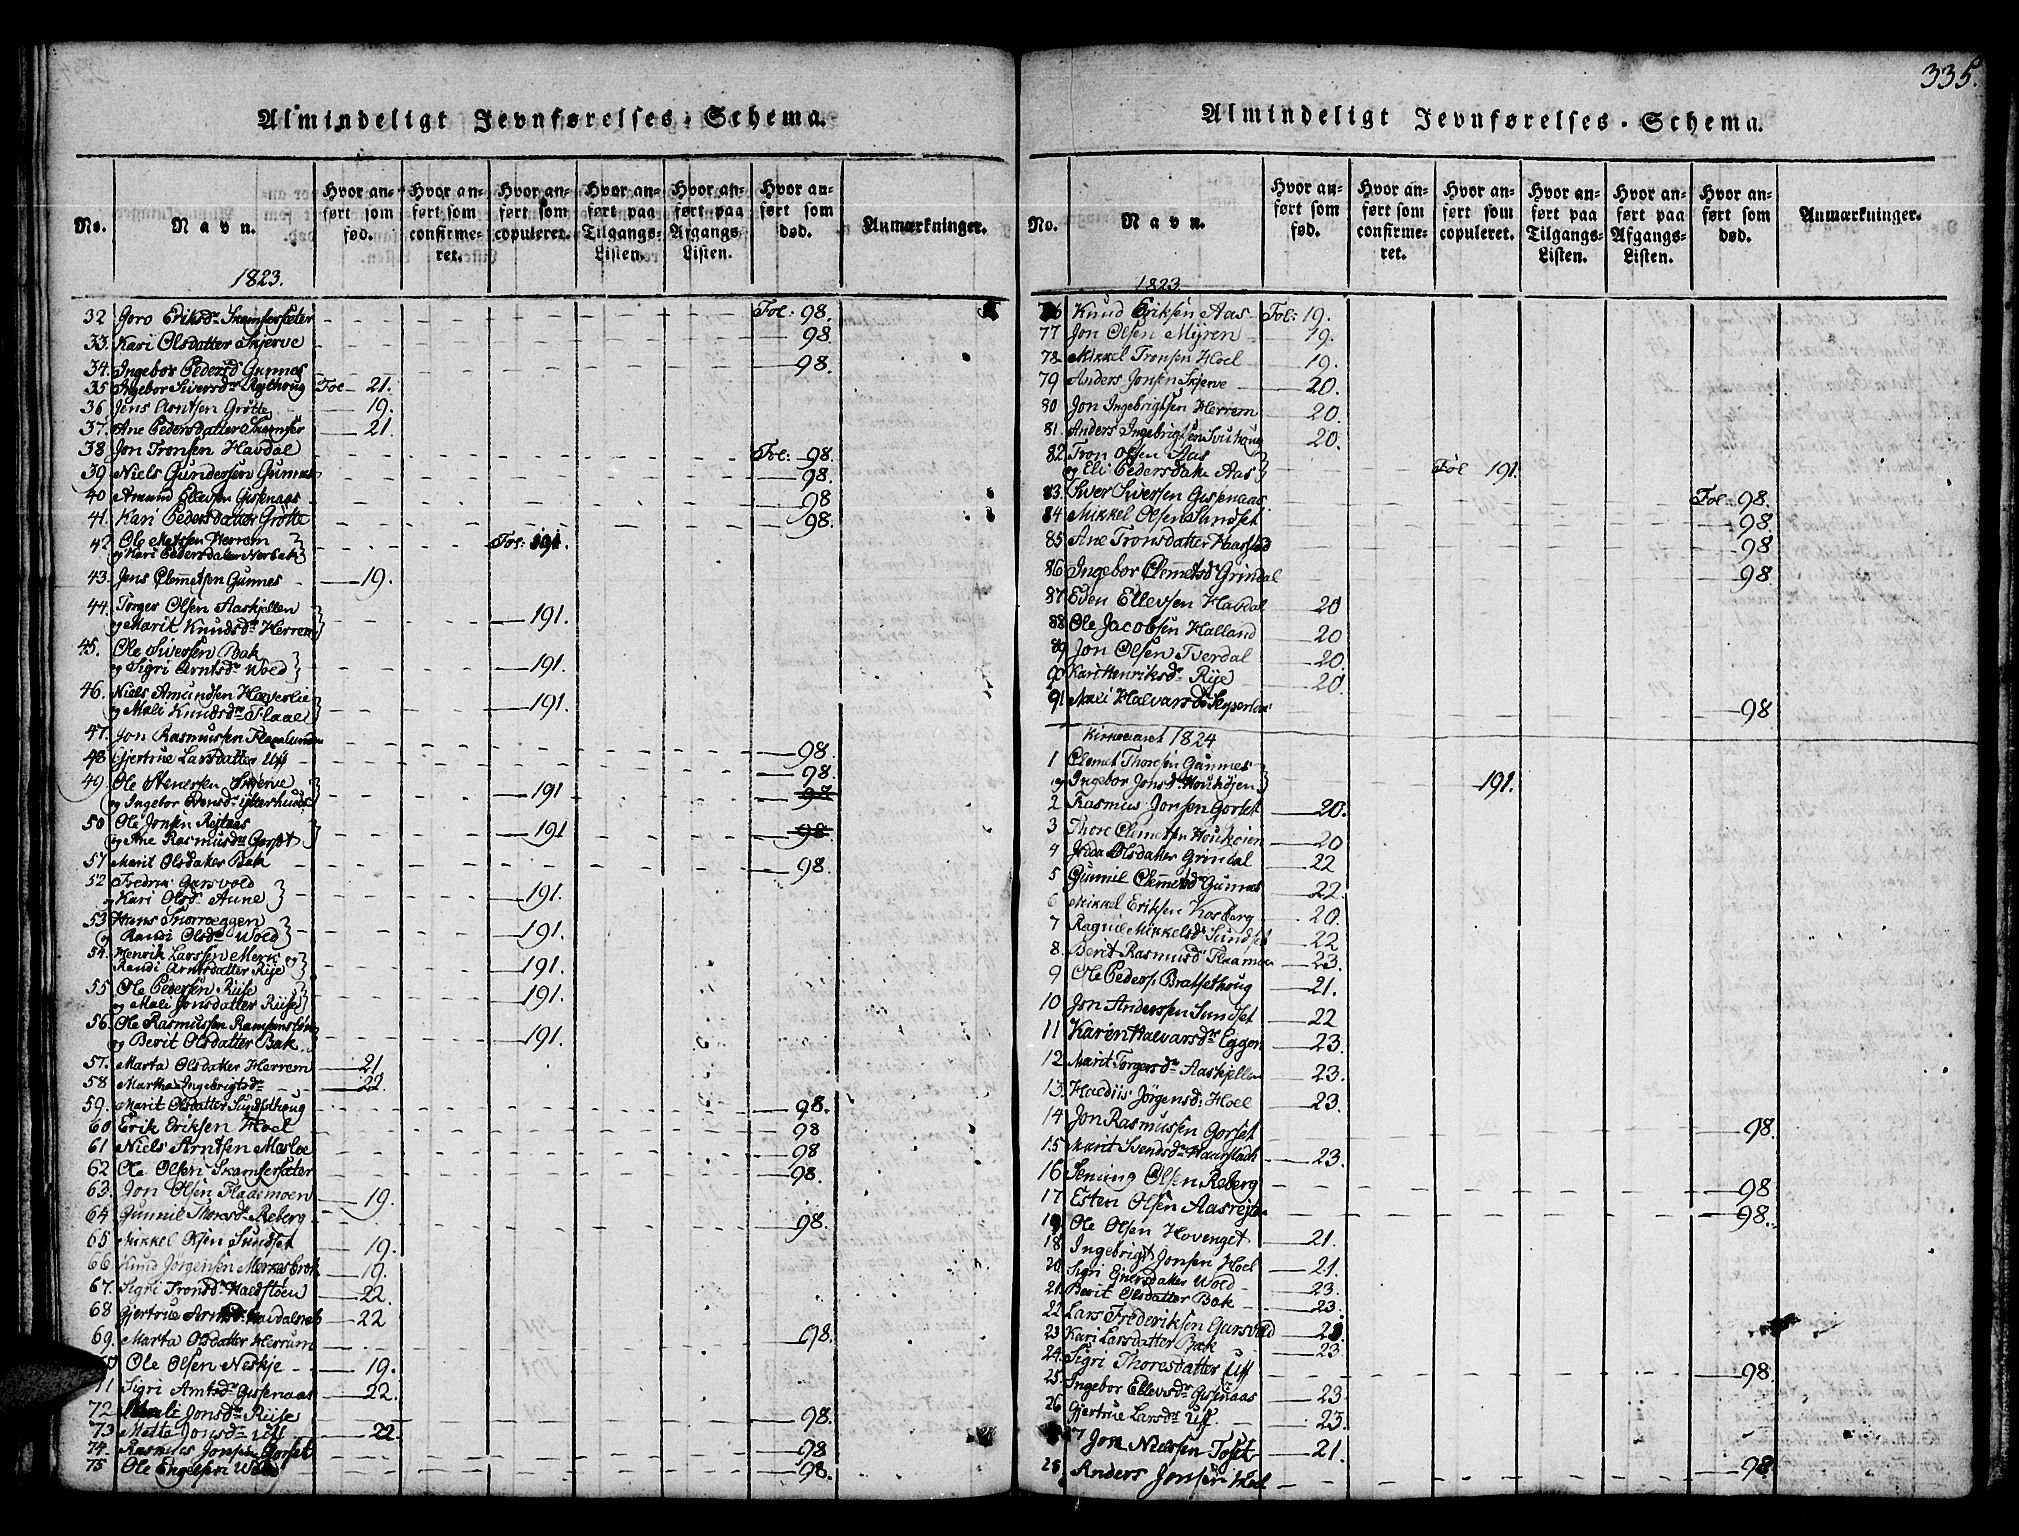 335.
Almindeligt Jevnførelses-Schema.
No. Navn. Hvor anført som fød. Hvor anført som confirmeret. Hvor anført som copuleret. Hvor anført paa Tilgangs-Listen. Hvor anført paa Afgangs-Listen. Hvor anført som død. Anmærkninger.
1823.
32 Goro Eriksdr Skamfersæter Fol: 98.
33. Kari Olsdatter Skjerve 98
34. Ingebor Pedersdr Gunnes 98.
35 Ingebor Siversdr Fol 21.
36. Jens Arntsen Grötte 19.
37. Ane Pedersdatter Skamfer 21.
38. Jon Tronsen Havdal Fol: 98.
39 Niels Gundersen Gunnes 98.
40 Amund Ellevsen Gisenaas 98
41. Kari Pedersdatter Grötte 98.
42 Ole Matssen Herrem
og Kari Pedersdatter Nerbak Fol: 191.
43. Jens Clemetsen Gunnes 19.
44. Torger Olsen Aaskjellen
og Marit Knudsdr Herrem 191.
45. Ole Siversen Bak
og Sigri Arntsdr Wold 191.
46. Niels Amundsen Hæverlie
og Mali Knudsdr Flaae 191.
47. Jon Rasmussen 98.
48 Gjertrue Larsdatter Uff 98.
49 Ole Stenersen Skjerve
og Ingebor Evensdr Ytterhuus 191 98
50 Ole Jonsen Rejtaas
og Ane Rasmusdr Gorset 191 98
51 Marit Olsdatter Bak 98.
52 Fredrik Garsvold
og Kari Olsdr Aune 191.
53 Hans Snorroeggen
og Randi Olsdr Wold 191.
54. Henrik Larssen Merk og
Randi Arntsdatter Rije 191.
55 Ole Pedersen Riise
og Mali Jonsdatter Riise 191.
56. Ole Rasmussen
og Berit Olsdatter Bak. 191.
57. Marta Olsdatter Herrem 21
58 Martha Ingebrigtsdr 22.
59. Marit Olsdatter Sundsethoug 98.
60 Erik Eriksen Hoel 98
61 Niels Arntsen Mosloe 98
62 Ole Olsen Skamfersæter 98.
63. Jon Olsen Flademoen 19.
64 Gunnil Thoresdr Reberg 98.
65 Mikkel Olsen Sundset 19.
66 Knud Jörgensen 19.
67. Sigri Tronsdr 22.
68 Gjertrue 22
69. Marta Olsdatter Herrem 98.
70 Ole Olsen Neskje 19.
71 Sigri Arntsdr Gisenaas 22.
72 Mali Jonsdr Riise 98.
73 Mette Jonsdr Uff 22.
74. Rasmus Jonsen Gorset 98
75 Ole Engelsen Wold 98.
Almindeligt Jevnførelses-Schema.
No. Navn. Hvor anført som fød. Hvor anført som confirmeret. Hvor anført som copuleret. Hvor anført paa Tilgangs-Listen. Hvor anført paa Afgangs-Listen. Hvor anført som død. Anmærkninger.
1823
76 Knud Eriksen Aas Fol: 19.
77 Jon Olsen Myren 19.
78 Mikkel Tronsen Hoel 19.
79 Anders Jonsen Skjerve 20.
80 Jon Ingebrigtsen Herrem 20.
81 Anders Ingebrigtsen 20.
82 Tron Olsen Aas
og Eli Pedersdatter Aas Fol 191.
83. Siver Siversen Gisenaas Fol: 98.
84 Mikkel Olsen Sundset 98
85 Ane Tronsdatter Haarstad 98
86 Ingebor Clemetsdr Grindal 98
87 Even Ellevsen Havdal 20
88 Ole Jacobsen Halland 20
89 Jon Olsen Tverdal 20.
90 Kari Henriksdr Rije 20.
91 Mali Halvarsdr 98
Kirkeaaret 1824
1 Clemet Thoresen Gunnes
og Ingebor Jonsdr 191.
2 Rasmus Jonsen Gorset 20.
3 Thore Clemetsen 20
4 Olsdatter Grindal 22
5 Gunnil Clemetsdr Gunnes 22.
6 Mikkel Eriksen Kosberg 20.
7 Ragnil Mikkelsdr Sundset 22
8. Berit Rasmusdr 23.
9 Ole Peders: Bratsethoug 21.
10 Jon Anderssen Sundset 22
11 Karen Halvarsdr Eggen 23.
12 Marit Torgersdr Aaskjellen 23.
13. Jörgensdr Hoel 23.
14 Jon Rasmussen Gorset 98.
15 Marit Svendsdr 23.
16 Olsen Reberg 98
17 Esten Olsen 98.
19. Ole Olsen Hovenget 21.
18 Ingebrigt Jonsen Hoel 21.
20. Sigri Ejnersdatter Wold 23.
21. Berit Olsdatter Bak 23.
22 Lars Frederiksen Garsvold
23 Kari Larsdatter Bak 23
24. Sigri Thoresdatter Uff 98.
25. Ingebor Ellevsdr Gisenaas 23
26 Gjertrue Larsdr Uff. 23.
27 Jon Nielssen Toset 21.
28 Anders Jonsen Hoel 98